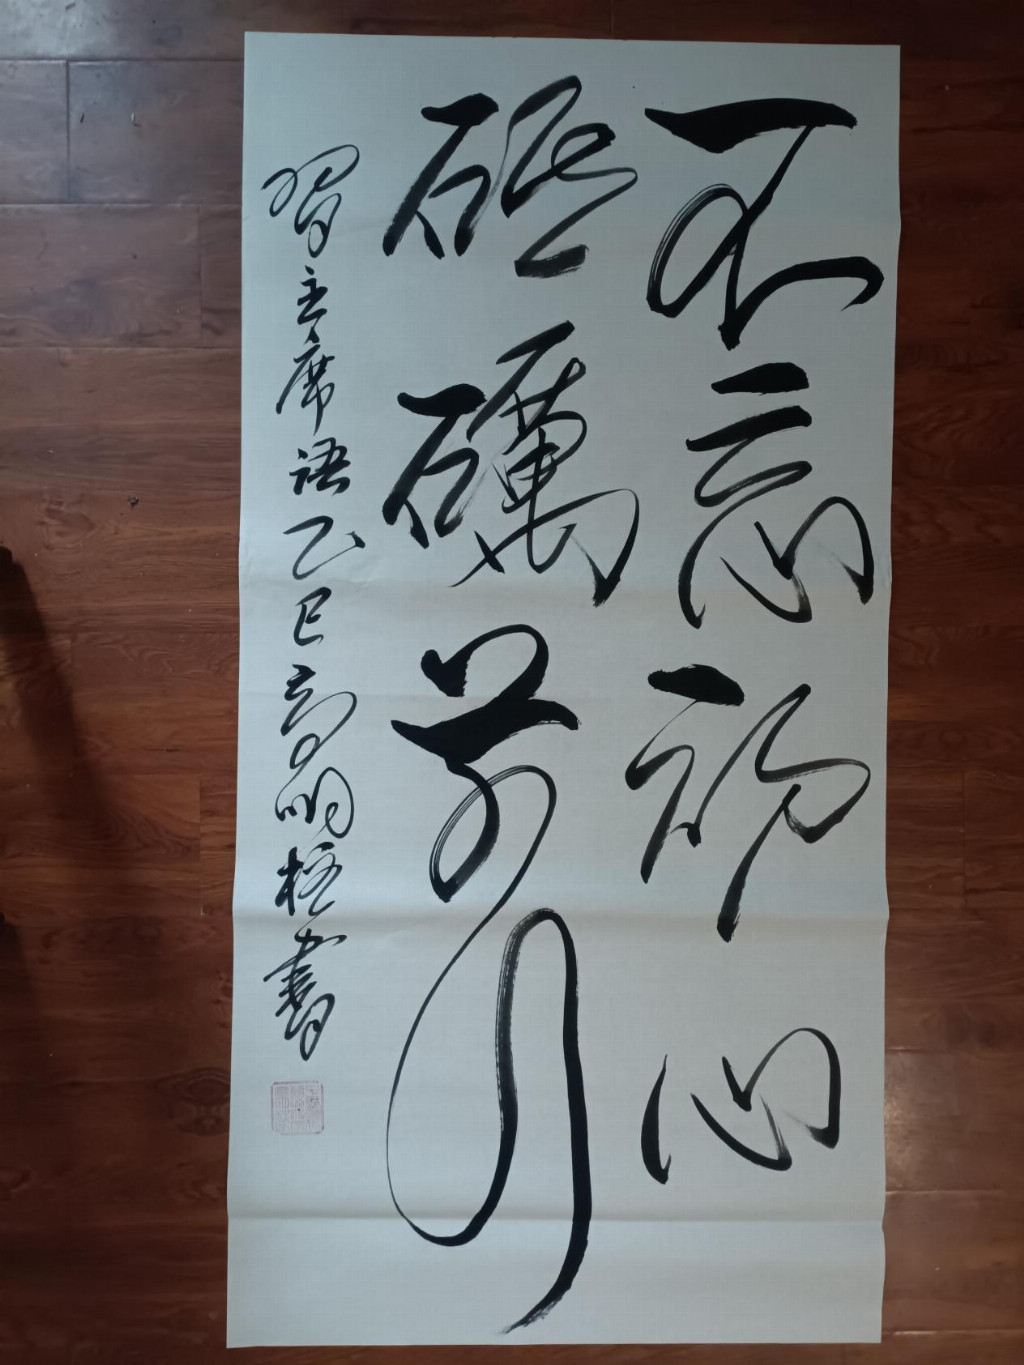 不忘初心
砥礪前行
習主席語乙巳高明柽書